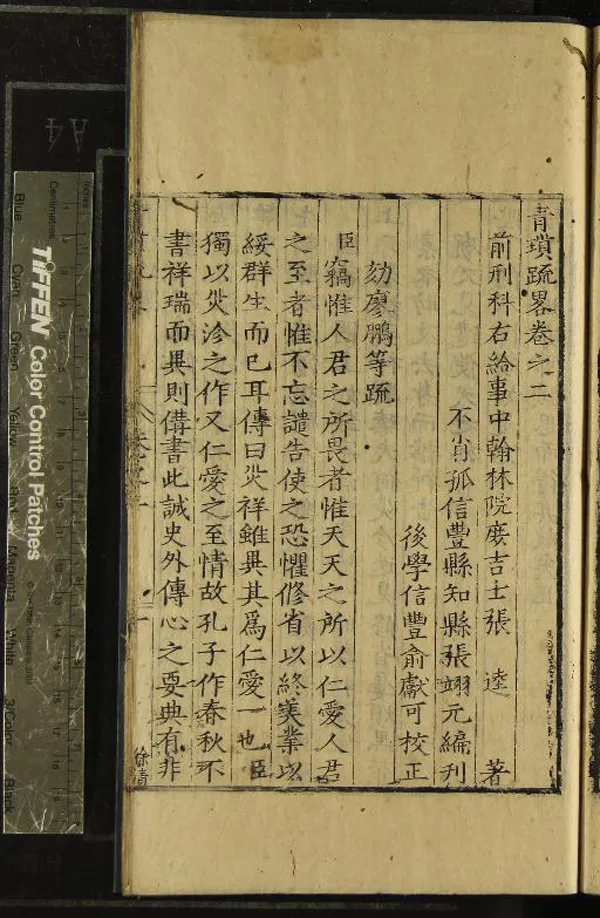 青瑣疏畧卷之二
前刑科右給事中翰林院庶吉士張 逵 著
不肖孤信豐縣知縣張翊元編刋
後學信豐俞獻可校正
劾廖鵬等疏
臣竊惟人君之所畏者惟天天之所以仁愛人君
之至者惟不忘譴告使之恐懼修省以終美業以
綏群生而已耳傳曰災祥雖異其爲仁愛一也臣
獨以災沴之作又仁愛之至情故孔子作春秋不
書祥瑞而異則俻書此誠史外傳心之要典有非
徐清
TIFFEN Color Control Patches
Centimetres
Inches
Blue
Cyan
Green
Yellow
Red
Magenta
White
3/Color
Black
A4